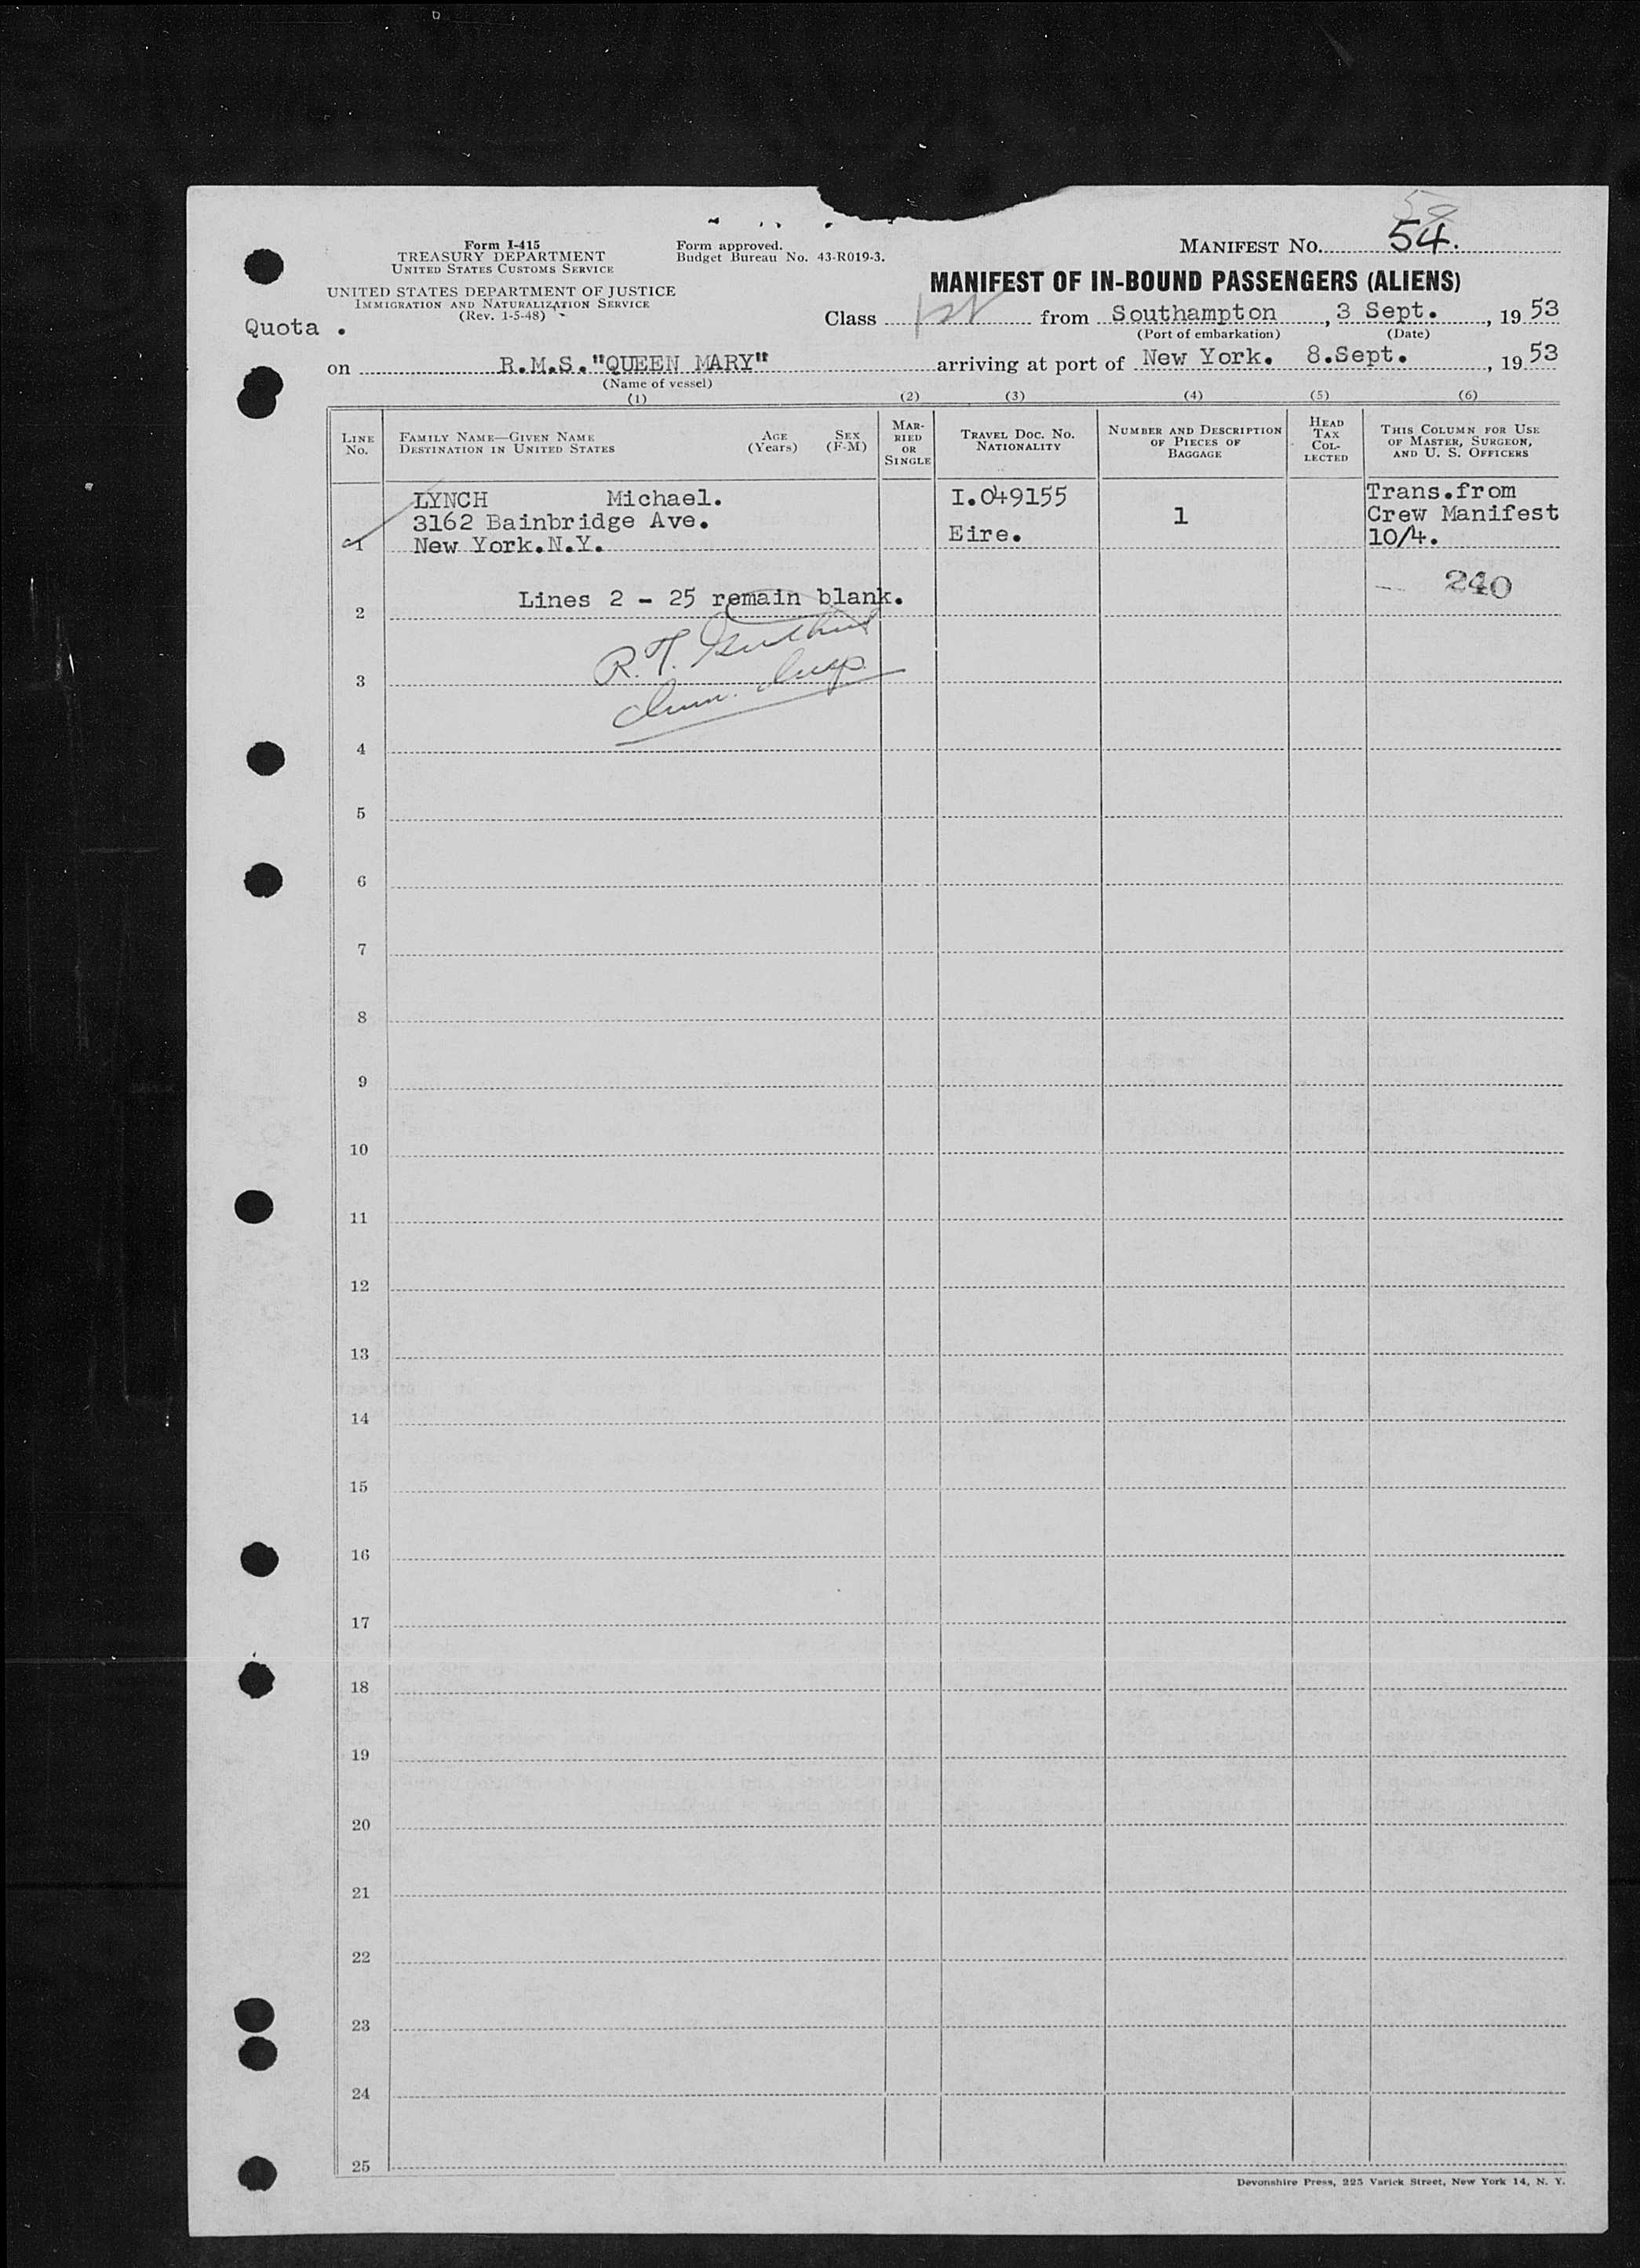 58
MANIFEST NO. 54.
Form I-415
TREASURY DEPARTMENT
UNITED STATES CUSTOMS SERVICE
UNITED STATES DEPARTMENT OF JUSTICE
IMMIGRATION AND NATURALIZATION SERVICE
(Rev. 1-5-48)
Form approved.
Budget Bureau No. 43-R019-3.
MANIFEST OF IN-BOUND PASSENGERS (ALIENS)
Quota .
Class 1st from Southampton, 3 Sept., 19 53
(Port of embarkation) (Date)
on R.M.S."QUEEN MARY" arriving at port of New York. 8.Sept., 19 53
(Name of vessel)
(1) (2) (3) (4) (5) (6)
LINE NO.
FAMILY NAME—GIVEN NAME
DESTINATION IN UNITED STATES
AGE (Years)
SEX (F-M)
MARRIED OR SINGLE
TRAVEL DOC. NO.
NATIONALITY
NUMBER AND DESCRIPTION
OF PIECES OF
BAGGAGE
HEAD TAX COLLECTED
THIS COLUMN FOR USE
OF MASTER, SURGEON,
AND U. S. OFFICERS
LYNCH Michael. I.049155 Trans.from
3162 Bainbridge Ave. 1 Crew Manifest
1 New York.N.Y. Eire. 10/4.
240
2 Lines 2 - 25 remain blank.
R.T.
3
Imm. Insp.
4
5
6
7
8
9
10
11
12
13
14
15
16
17
18
19
20
21
22
23
24
25
Devonshire Press, 225 Varick Street, New York 14, N. Y.